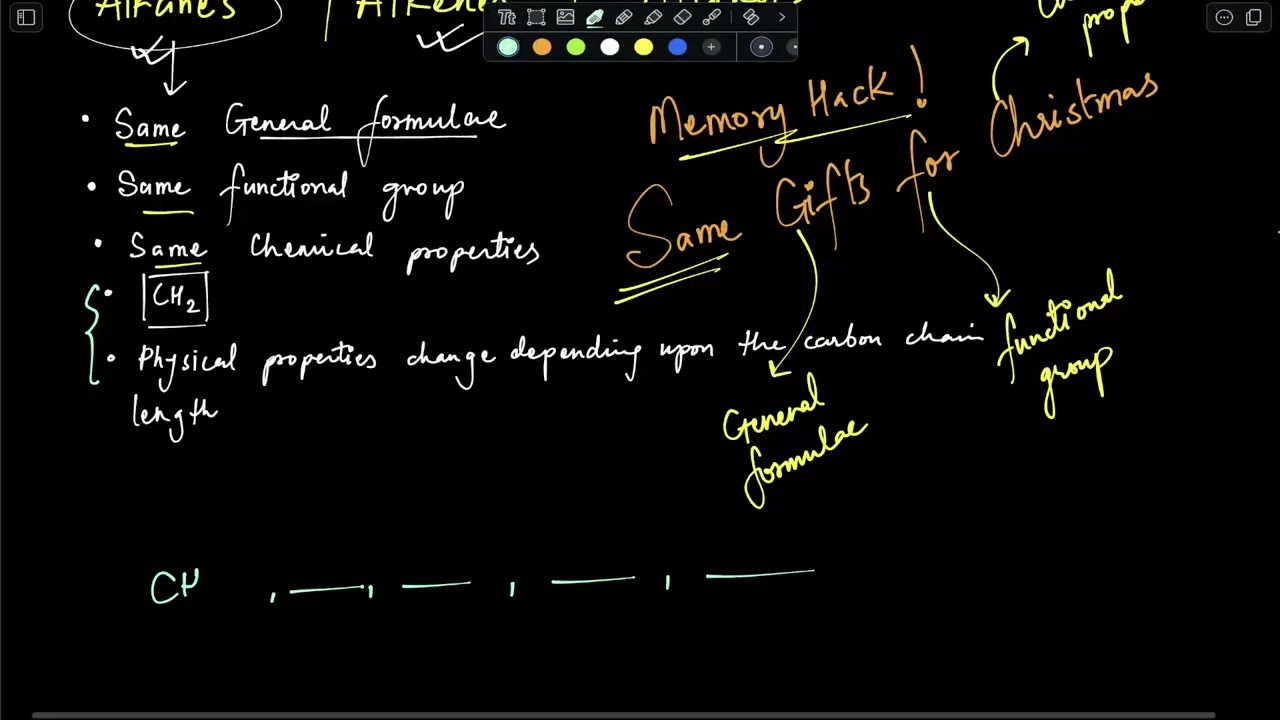 Alkanes | Alkenes
• Same General formulae
• Same functional group
• Same Chemical properties
• CH2
• Physical properties change depending upon the carbon chain
length
Memory Hack!
Same Gifts for Christmas
General
formulae
functional
group
Tt
CH , , , ,